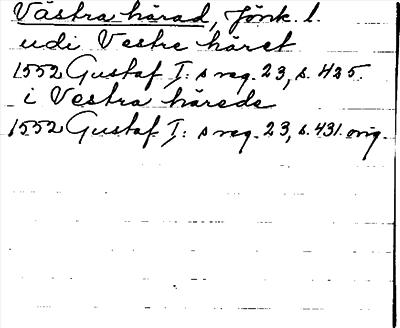 Västra härad, Jönk. l.
udi Vestre häret
1552 Gustaf I: s reg. 23, s. 425.
i Vestra härede
1552 Gustaf I: s reg. 23, s. 431. orig.